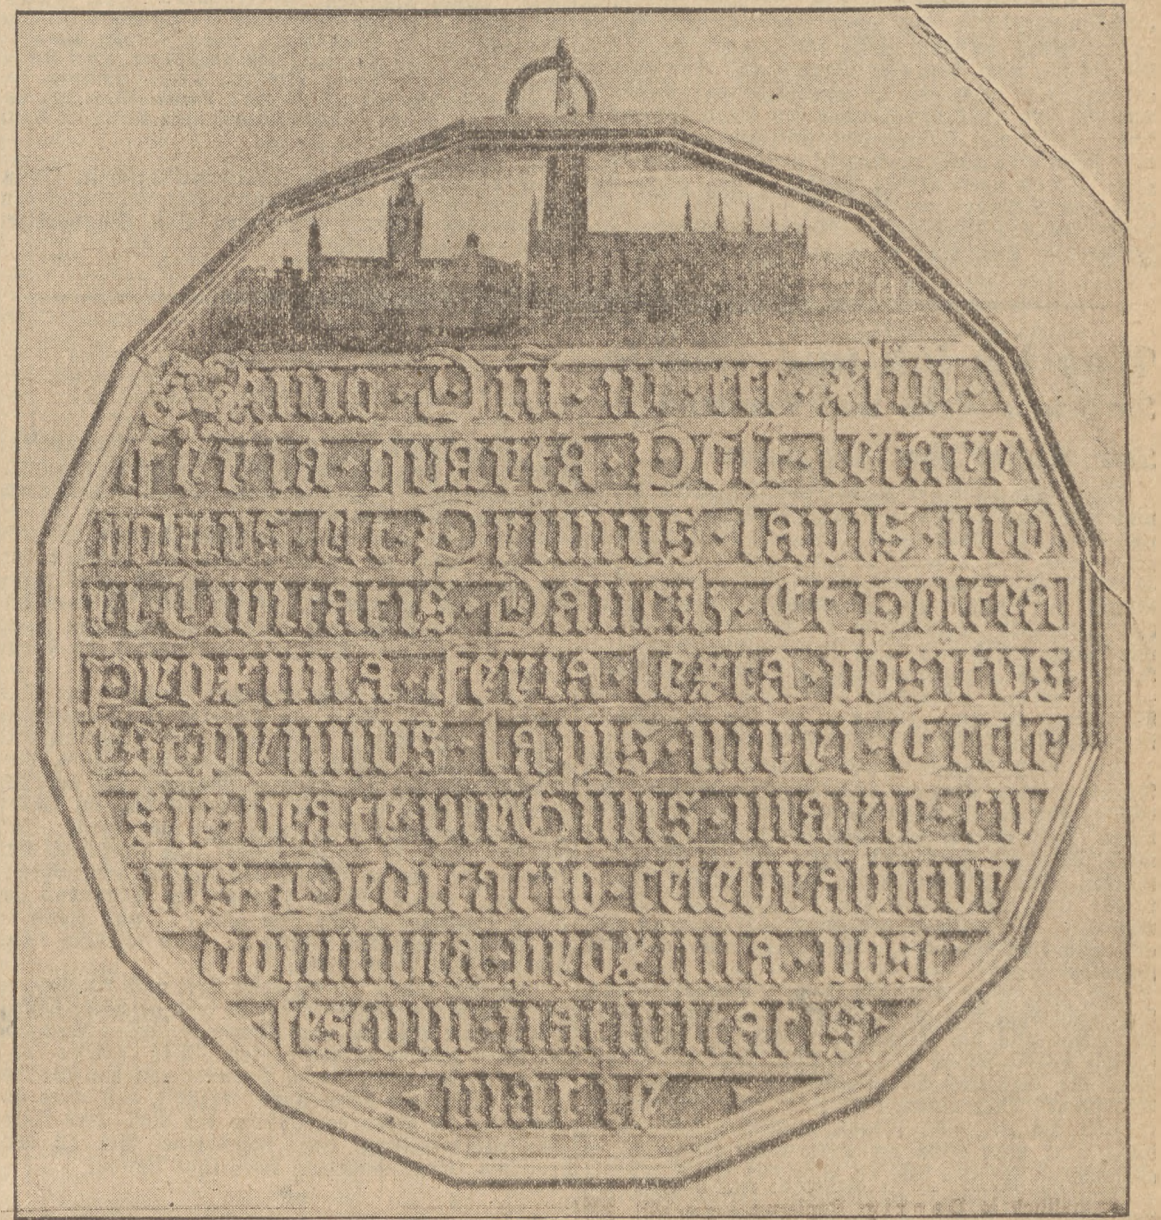 Anno · Dñi · m · ccc · xliii ·
feria · quarta · Post · letare
positus · est · Primus · lapis · mu
ri · Civitatis · Danczk · Et postea
proxima · feria · sexta · positus
Est primus · lapis · muri · Eccle
sie · beate · virGinis · marie · cu
ius · Dedicacio · celebrabitur
dominica · proxima · post
festum · nativitatis
marie